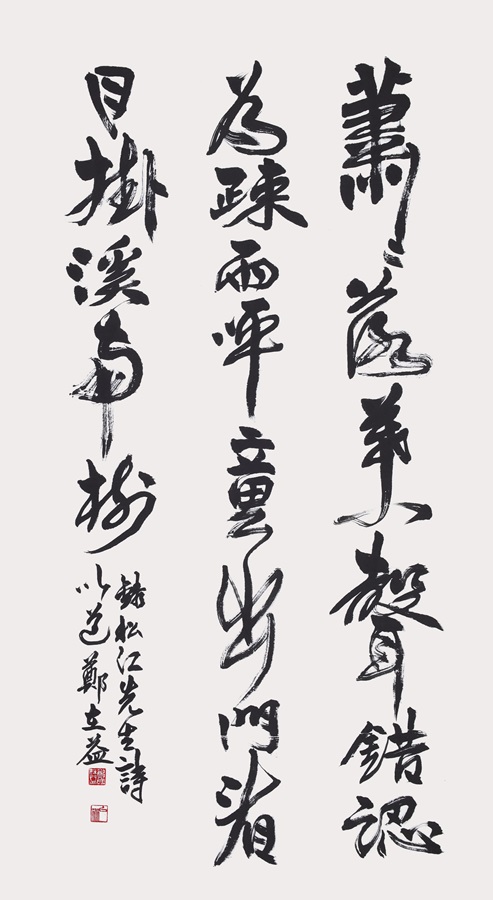 蕭々落葉聲錯認
為疎雨呼童出門看
月掛溪南樹
錄松江先生詩
以道鄭在益